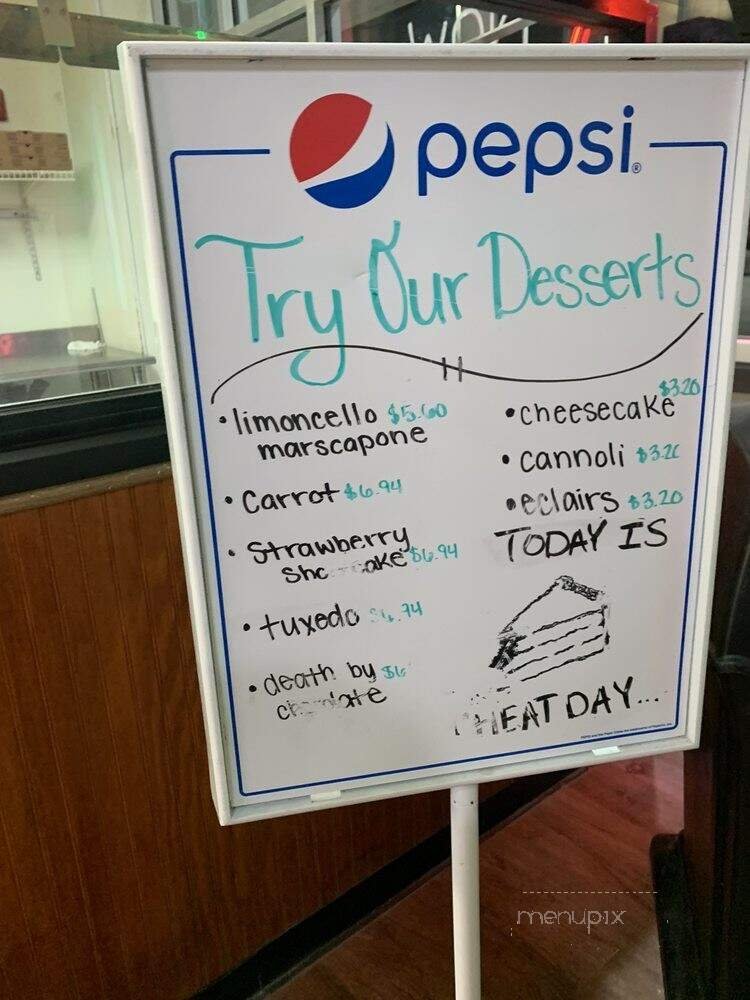 pepsi
Try Our Desserts
• limoncello $5.60
marscapone
• Carrot $6.94
• Strawberry
$6.94
• tuxedo
• death by
• cheesecake $3.20
• cannoli
• eclairs $3.20
TODAY IS
DAY...
menupix